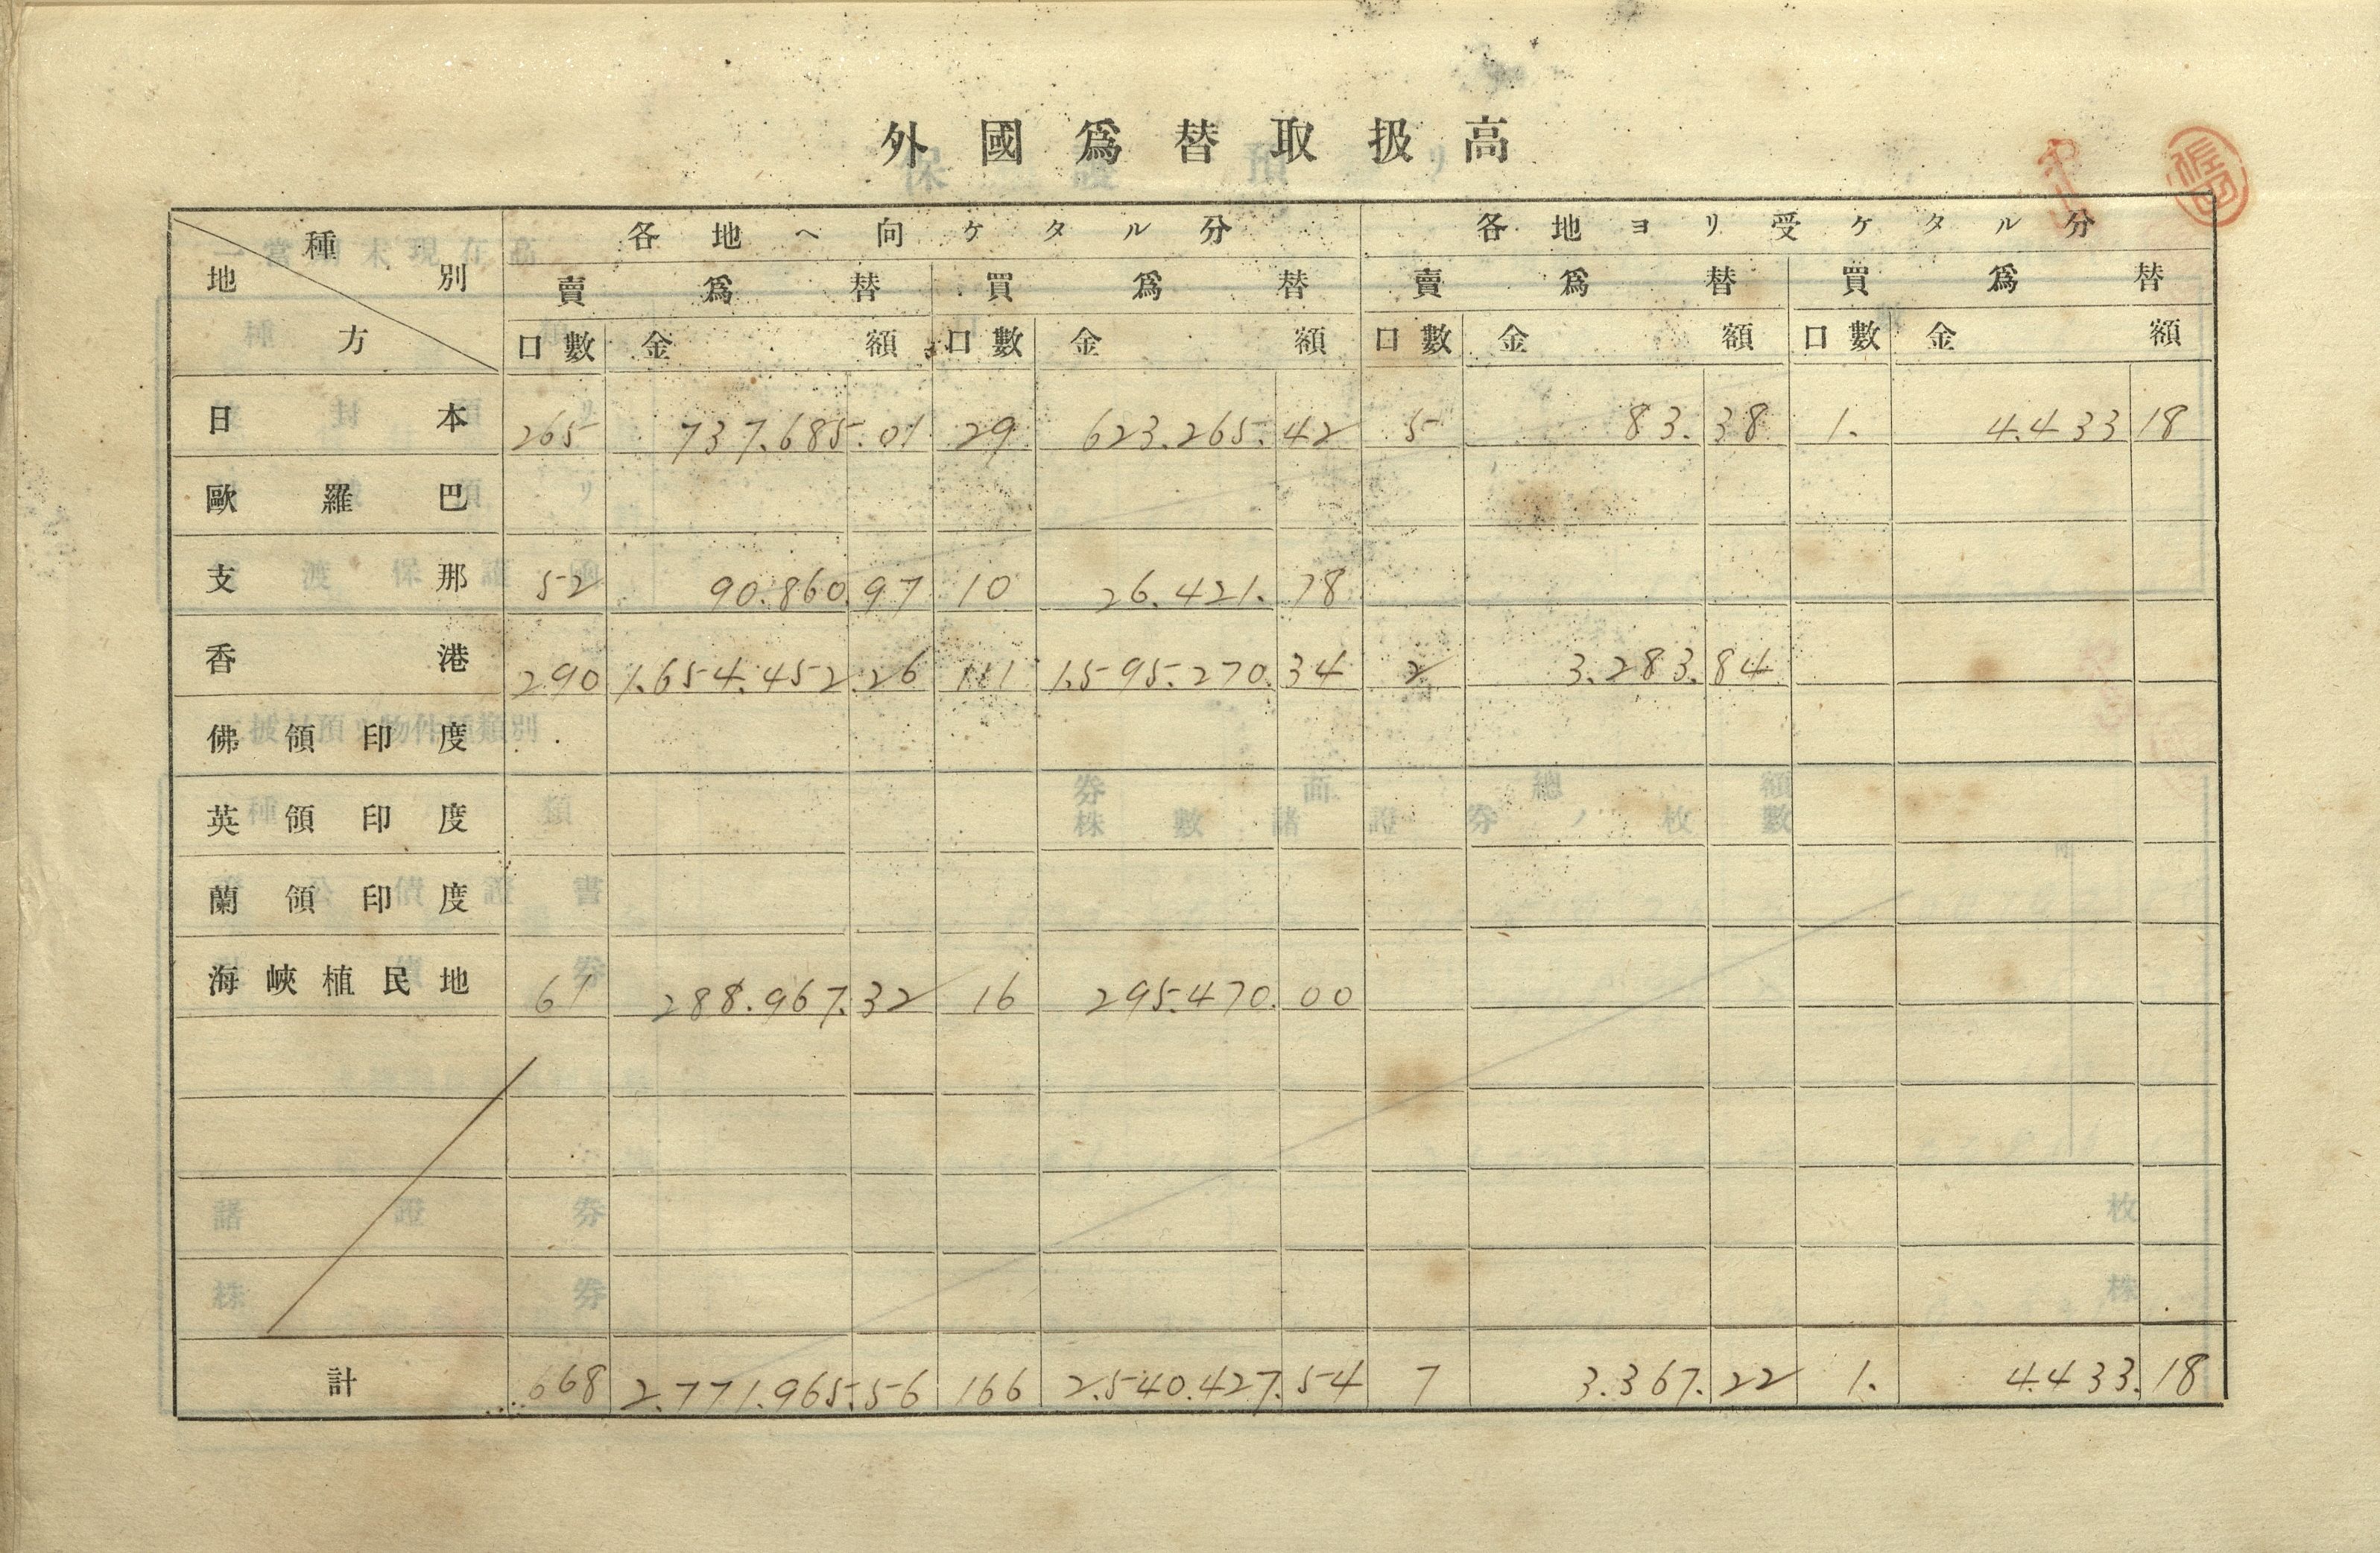 外國爲替取扱高
種別 地方 各地ヘ向ケタル分 各地ヨリ受ケタル分
賣爲替 買爲替 賣爲替 買爲替
口數 金額 口數 金額 口數 金額 口數 金額
日本 265 737.685.01 29 623.265.42 5 83.38 1. 4.433 18
歐羅巴
支那 52 90.860.97 10 26.421.78
香港 290 1.654.452.26 111 1.595.270.34 2 3.283.84
佛領印度
英領印度
蘭領印度
海峽植民地 61 288.967.32 16 295.470.00
計 668 2.771.965.56 166 2.540.427.54 7 3.367.22 1. 4.433.18